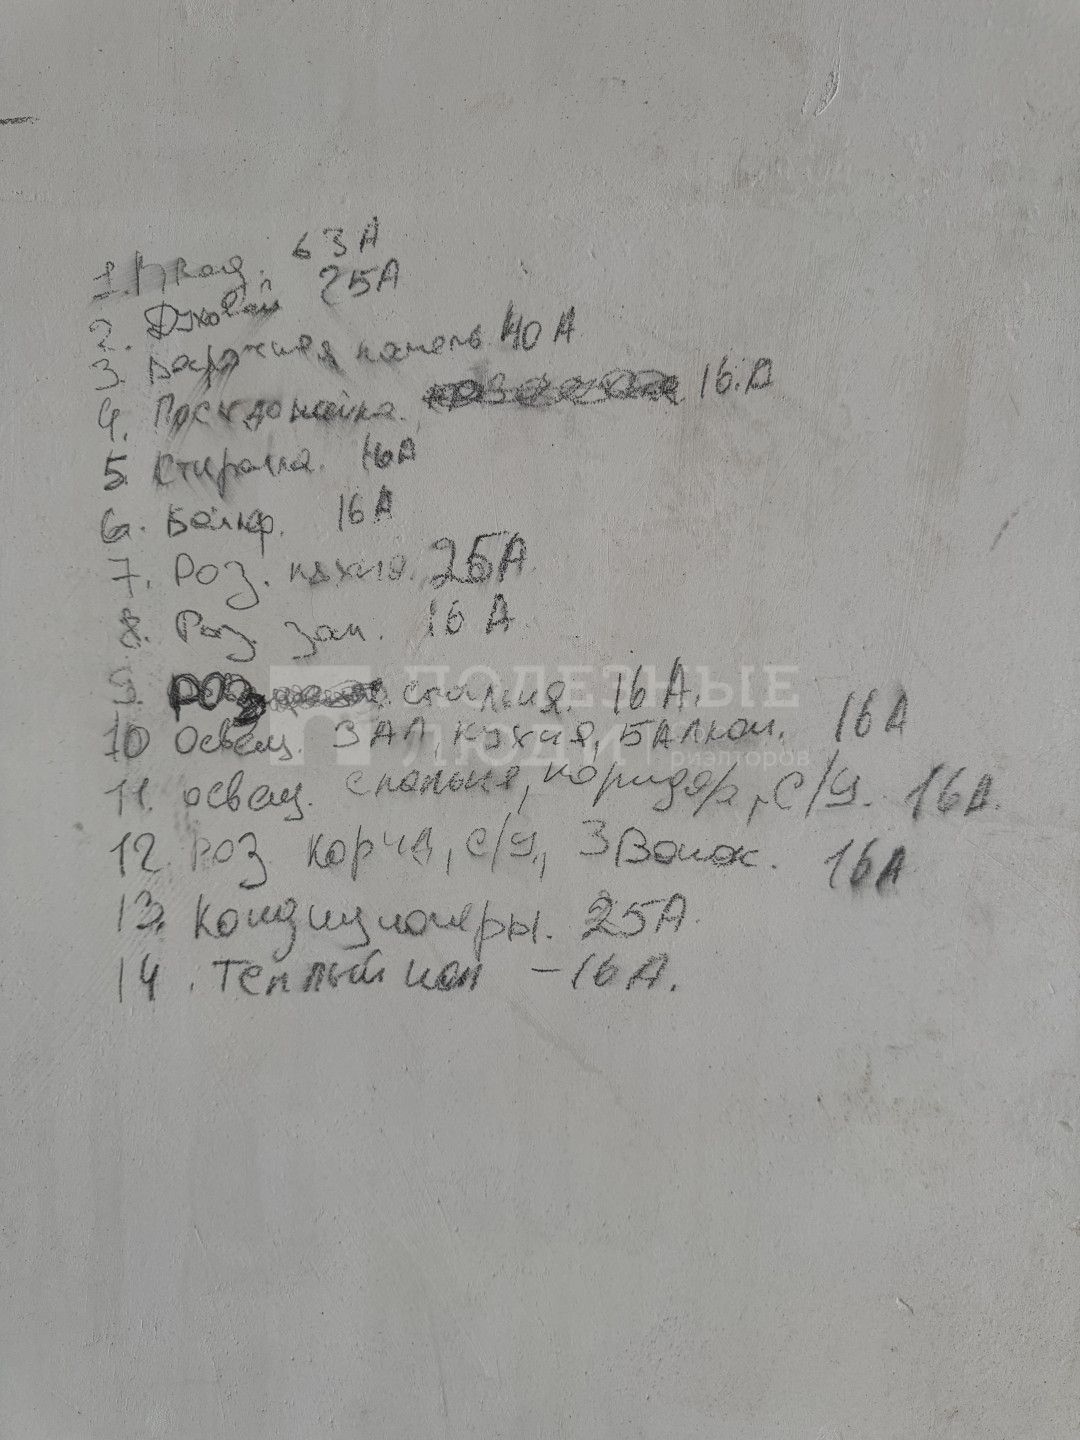 1. Ввод. 63А
2. Духовой 25А
3. Варочная панель 40А
4. Посудомойка. 16.А
5. Стиралка. 16А
6. Бойлер. 16А
7. Роз. кухня. 25А.
8. Роз. зал. 16А
9. РОЗ спальня. 16А.
10 Освещ. ЗАЛ, Кухня, БАЛкон. 16А
11. освещ. спальня, коридор, С/У. 16А.
12. РОЗ кор, С/У, Звонок. 16А
13. Кондиционеры. 25А.
14. Теплый пол - 16А.
ПОЛЕЗНЫЕ
ЛЮДИ
риэлторов